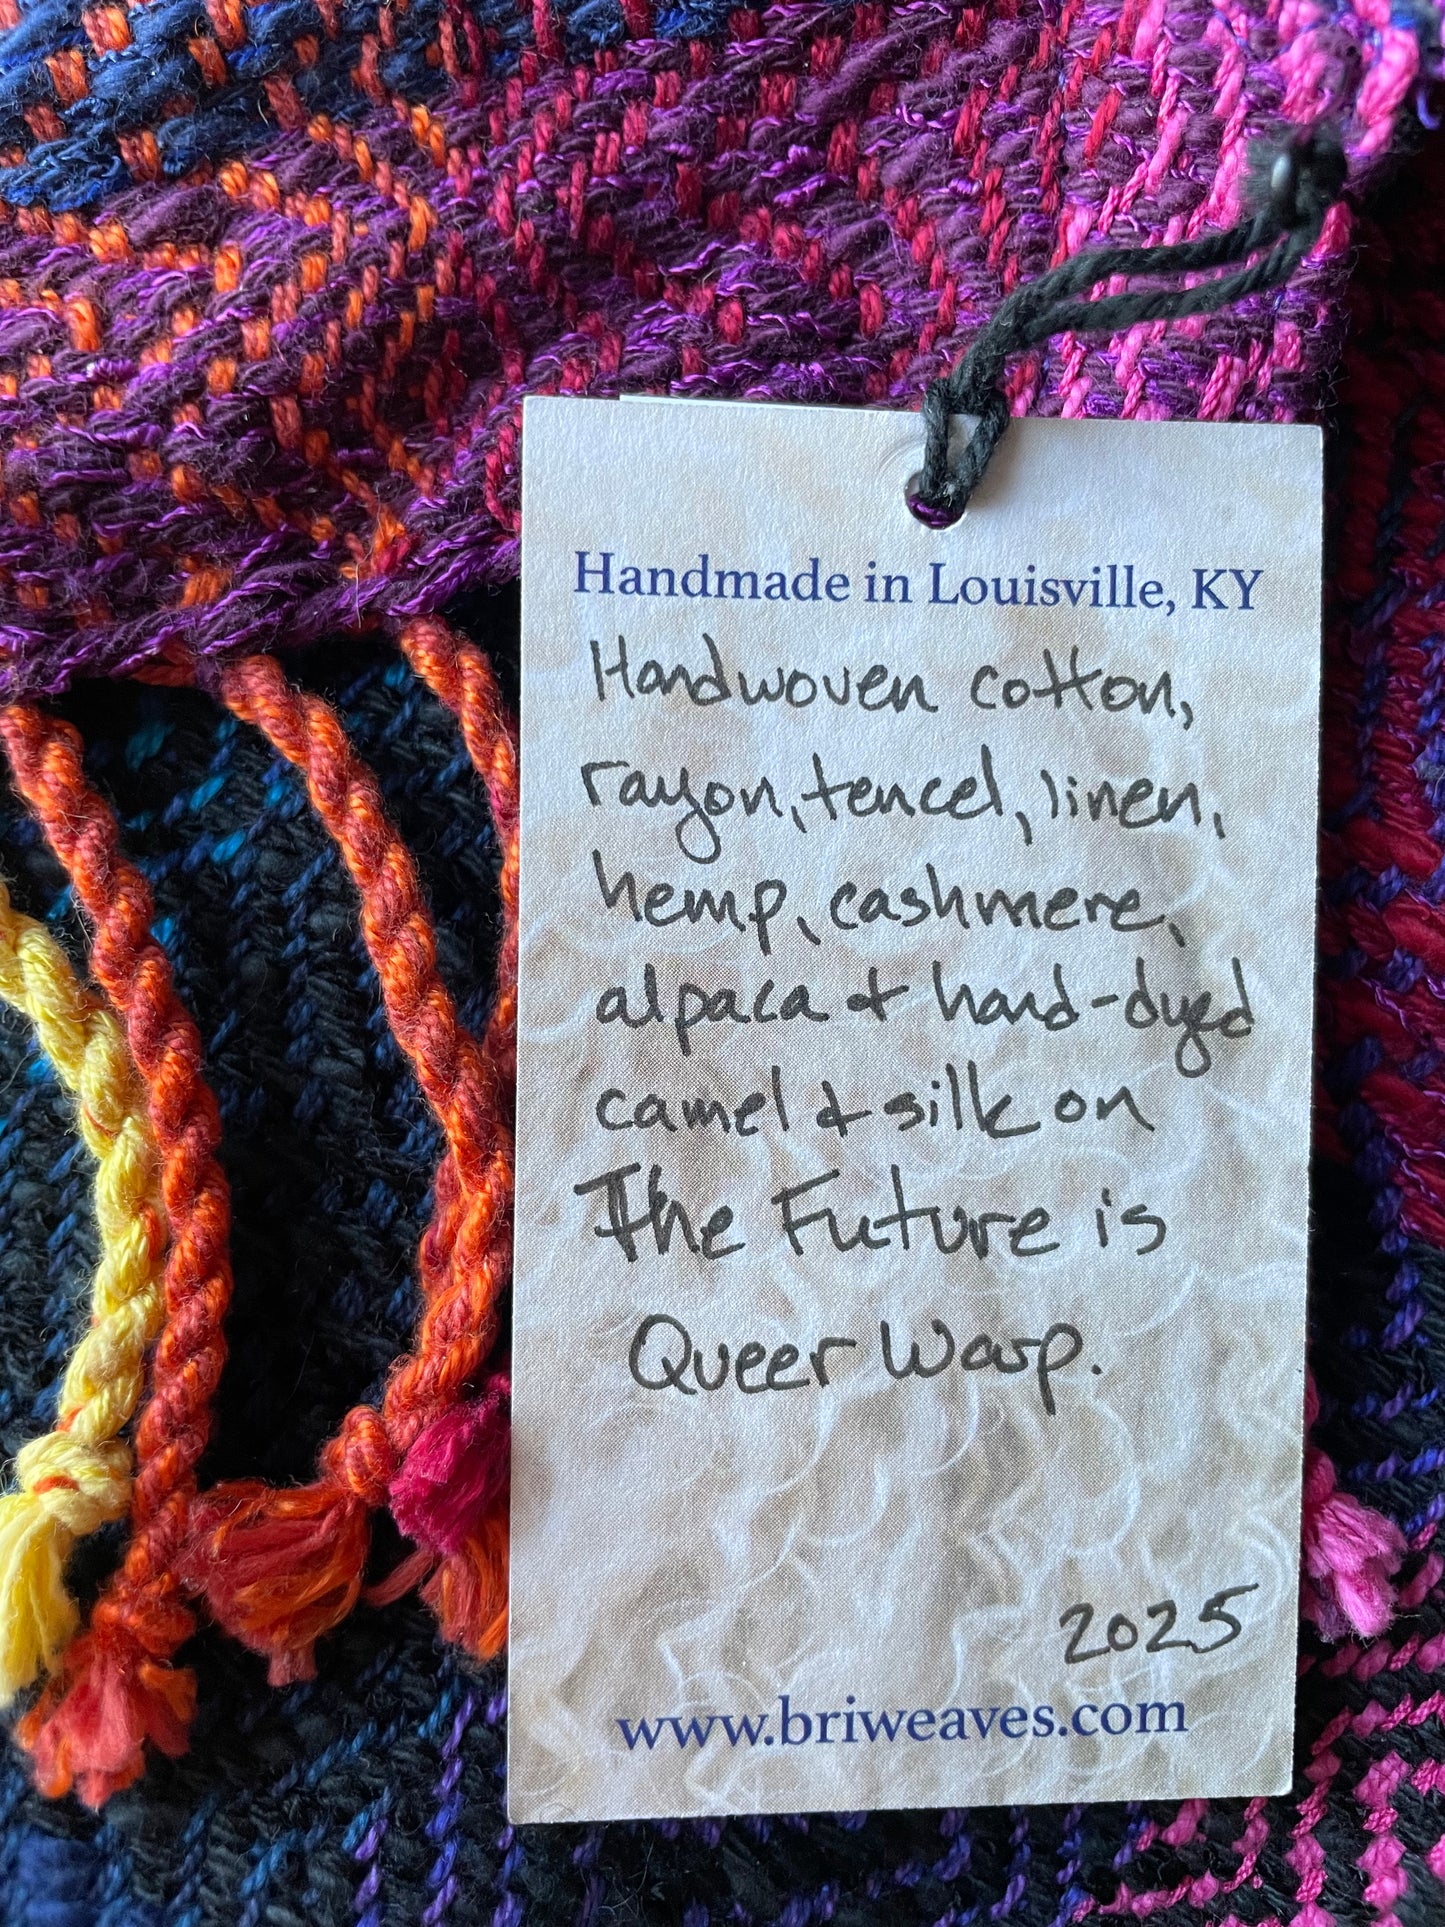 Handmade in Louisville, KY
Handwoven cotton,
rayon, tencel, linen,
hemp, cashmere,
alpaca & hand-dyed
camel & silk on
The Future is
Queer Warp.
2025
www.briweaves.com